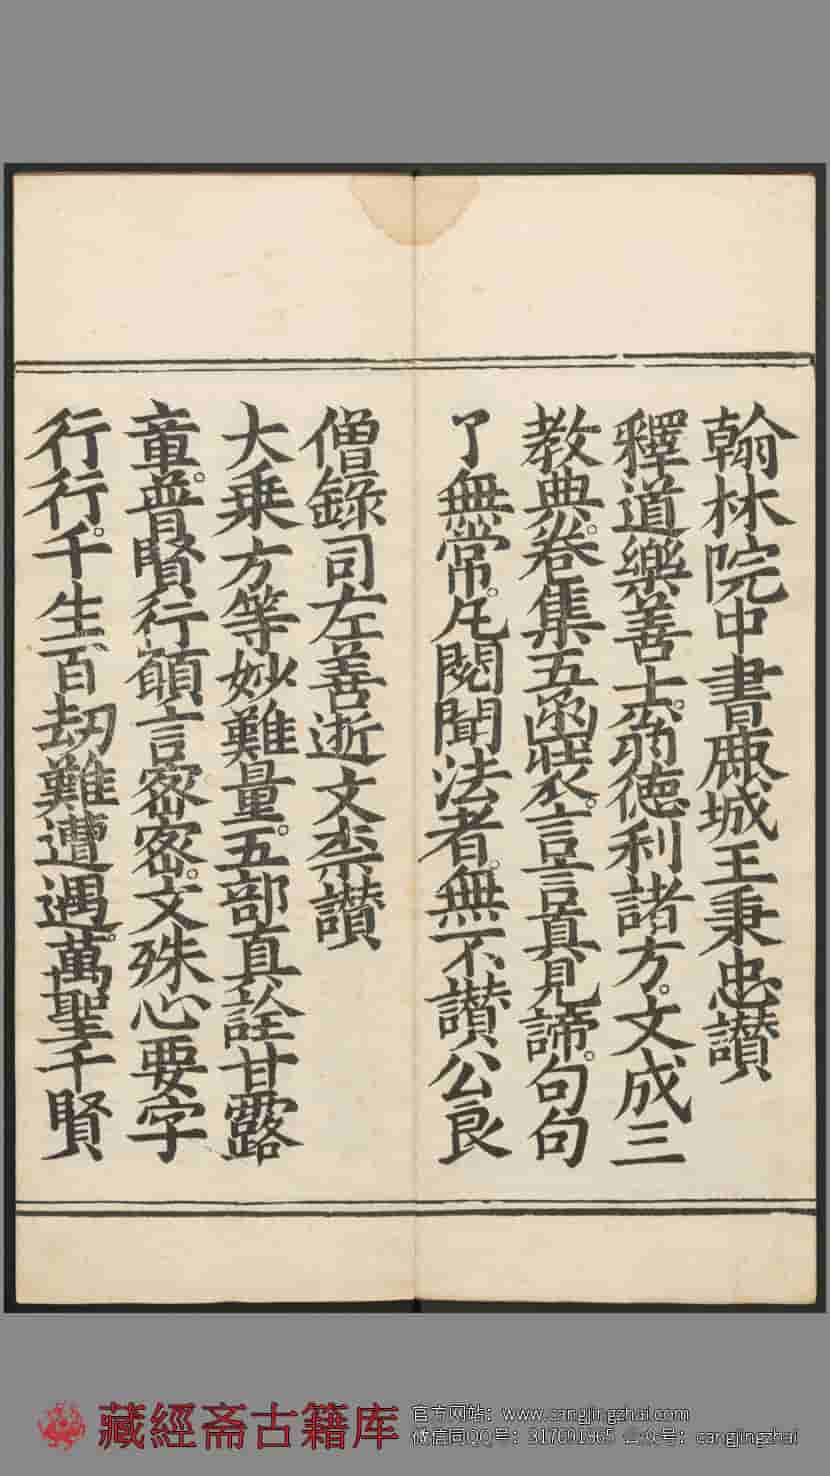 翰林院中書鹿城王秉忠讃
釋道樂善士。翁德利諸方。文成三
教典。卷集五函裝。言言真見諦。句句
了無常。凡閱聞法者。無不讃公良
僧錄司左善逝文柰讃
大乗方等妙難量。五部真詮甘露
童。普賢行願言密密。文殊心要字
行行。千生百劫難遭遇。萬聖千賢
藏經斋古籍库
官方网站：www.cangjingzhai.com
微信同QQ号：317691965 公众号：cangjingzhai